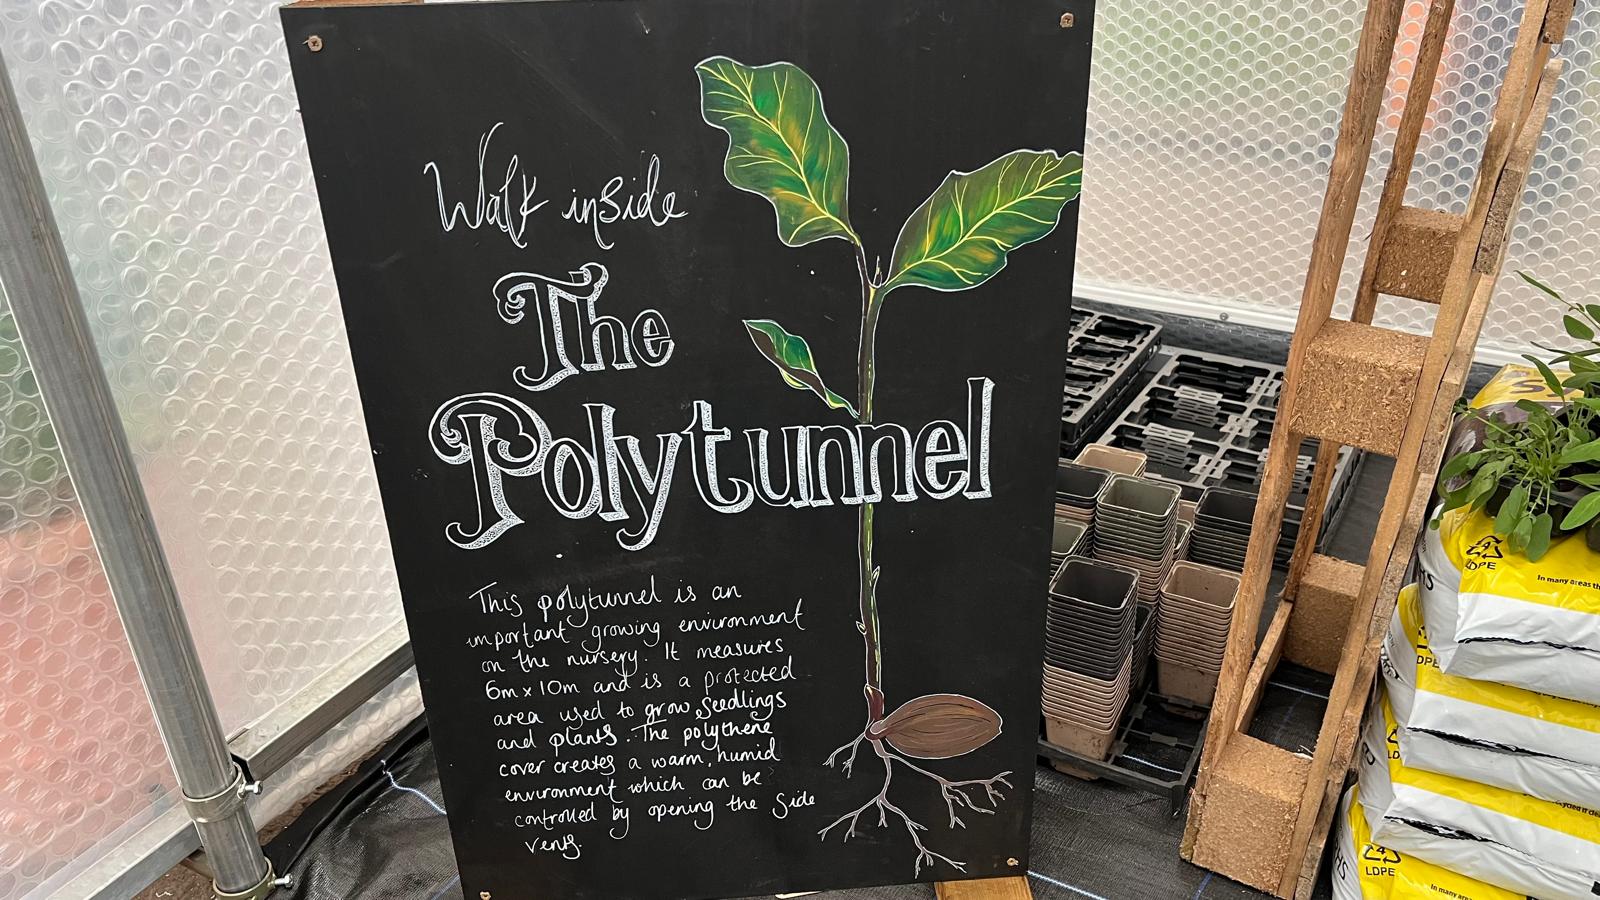 Walk inside
The
Polytunnel
This polytunnel is an
important growing environment
on the nursery. It measures
6m x 10m and is a protected
area used to grow seedlings
and plants. The polythene
cover creates a warm, humid
environment which can be
controlled by opening the side
vents.
4
LDPE
In many areas th
LDPE
4
LDPE
In many areas